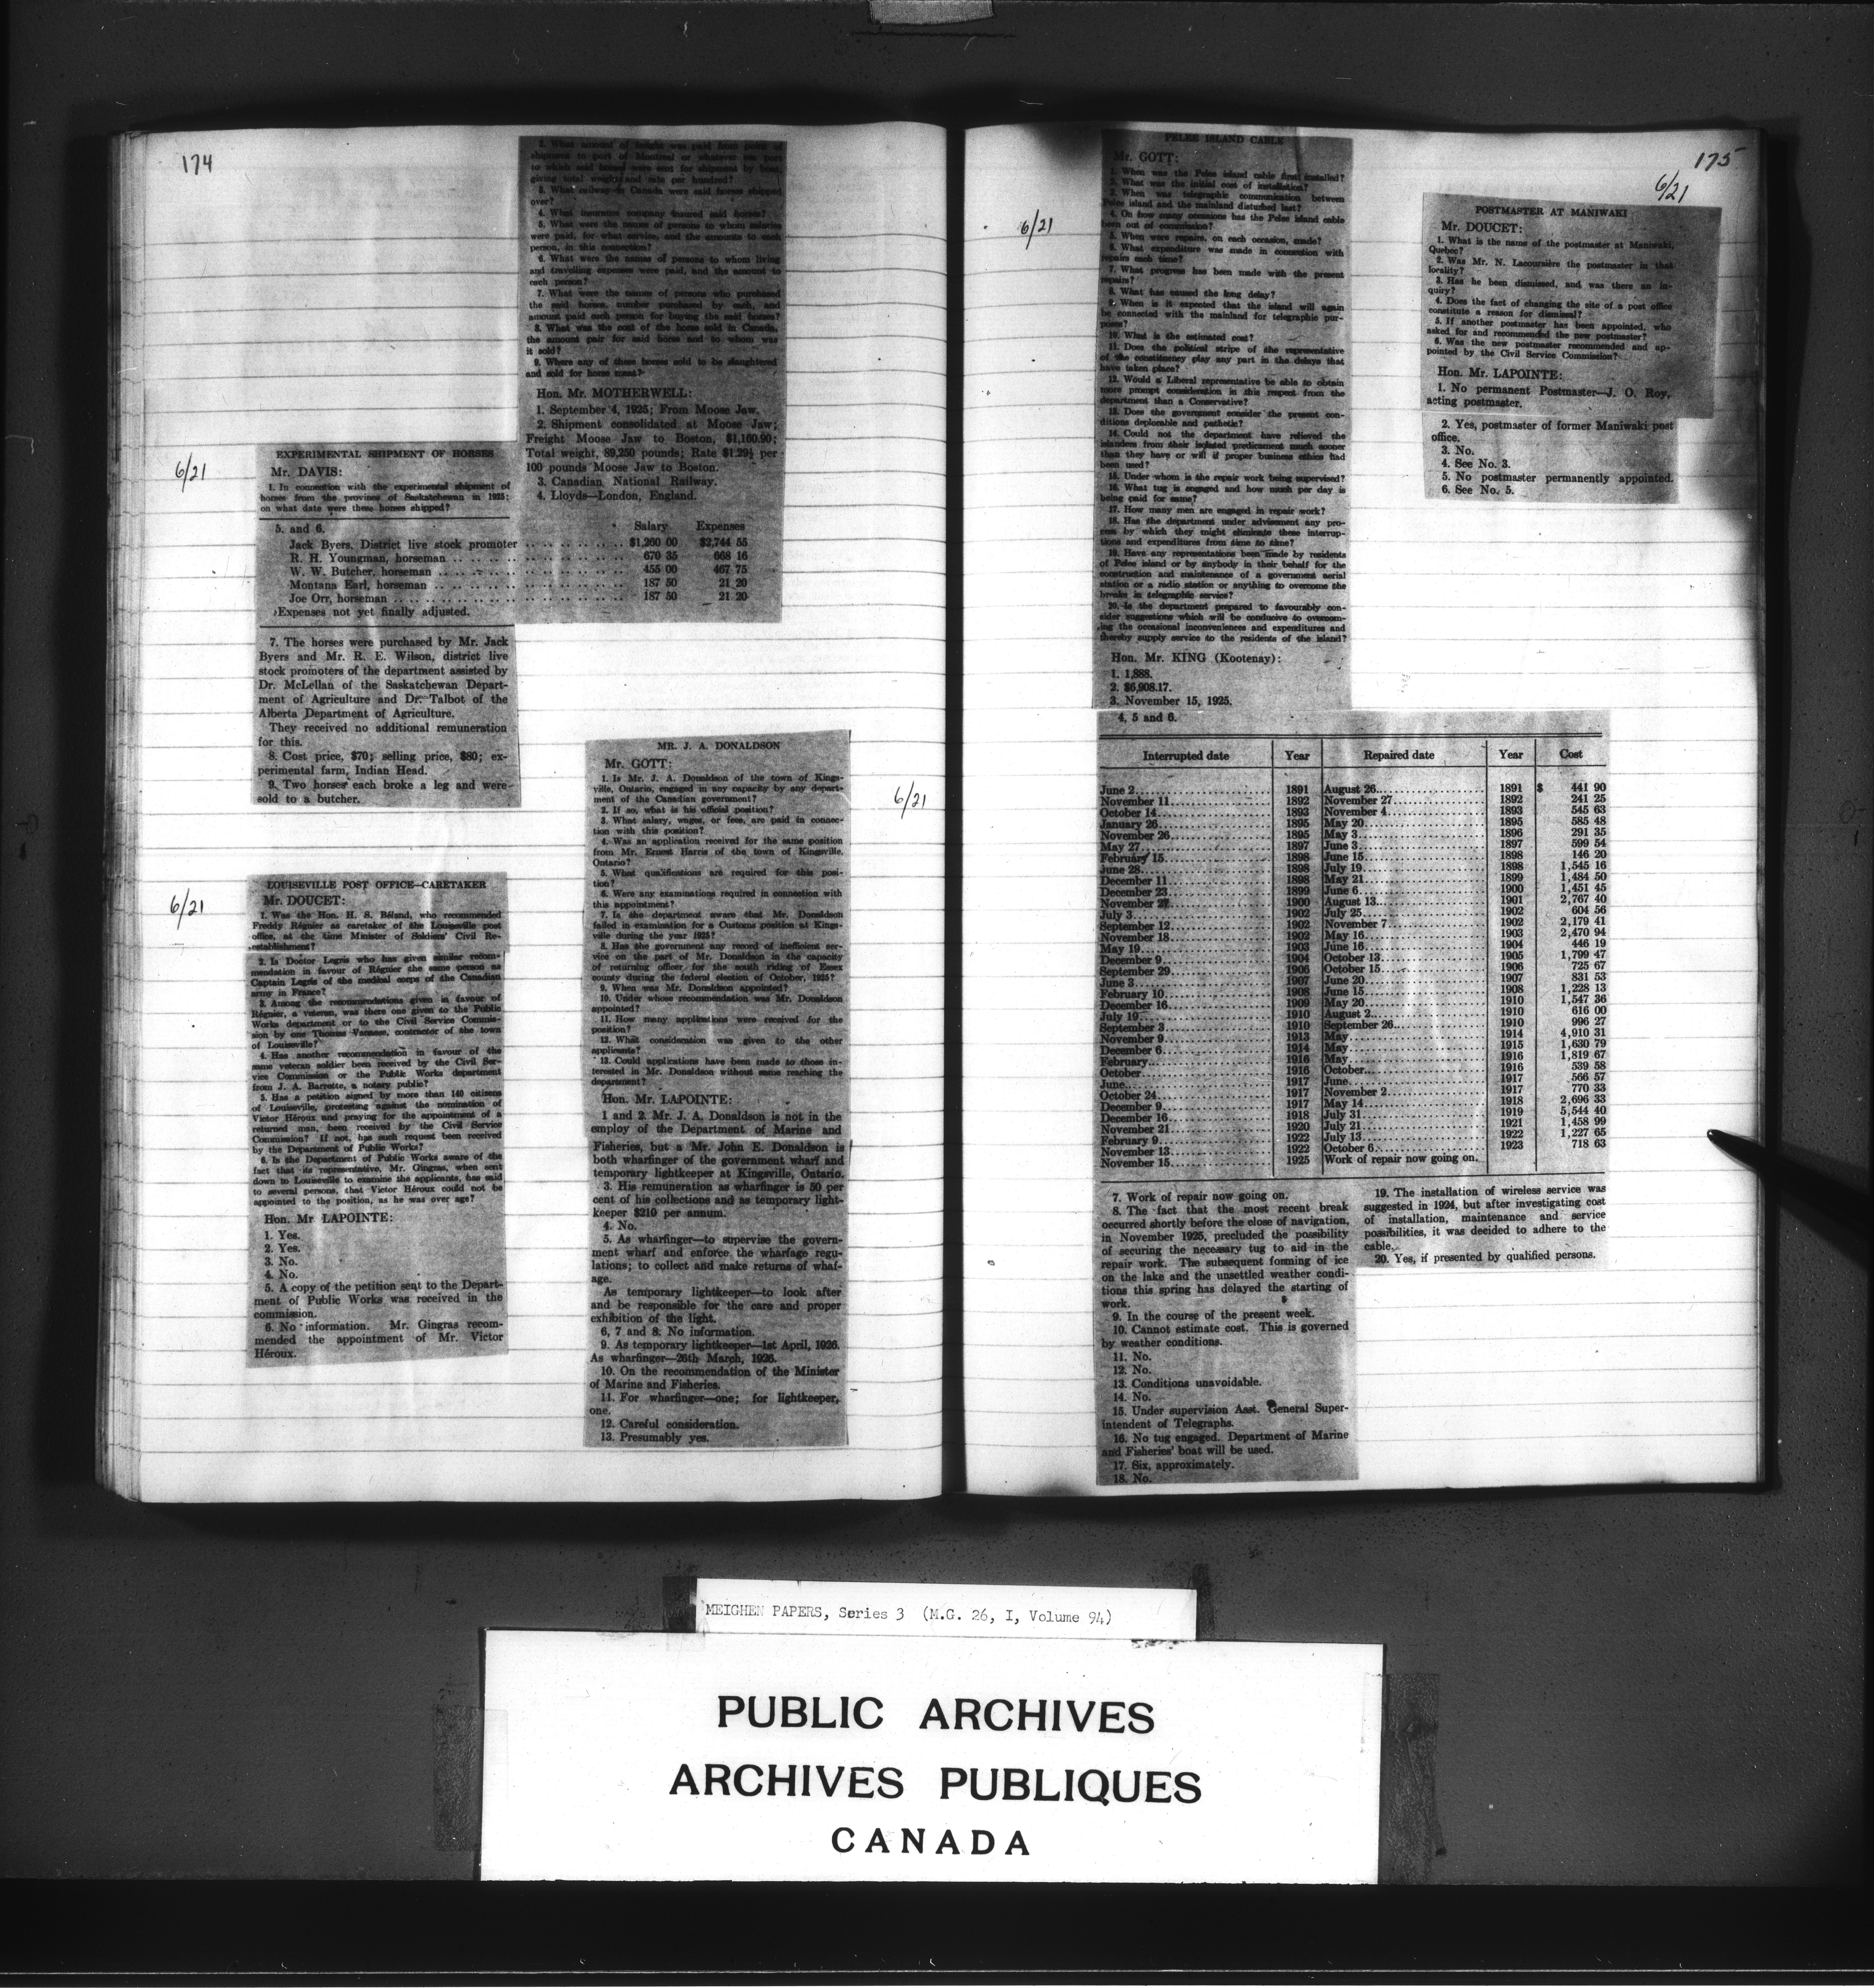 174
6/21
EXPERIMENTAL SHIPMENT OF HORSES
Mr. DAVIS:
1. In connection with the experimental shipment of
horses from the province of Saskatchewan in 1925;
on what date were these horses shipped?
2. What amount of freight was paid from point of
shipment to port of Montreal or whatever the port
to which said horses were sent for shipment by boat,
giving total weight and rate per hundred?
3. What railway in Canada were said horses shipped
over?
4. What insurance company insured said horses?
5. What were the names of persons to whom salaries
were paid, for what service, and the amounts to each
person, in this connection?
6. What were the names of persons to whom living
and travelling expenses were paid, and the amount to
each person?
7. What were the names of persons who purchased
the said horses, number purchased by each, and
amount paid each person for buying the said horses?
8. What was the cost of the horse sold in Canada,
the amount pair for said horse and to whom was
it sold?
9. Where any of these horses sold to be slaughtered
and sold for horse meat?
Hon. Mr. MOTHERWELL:
1. September 4, 1925; From Moose Jaw.
2. Shipment consolidated at Moose Jaw;
Freight Moose Jaw to Boston, $1,160.90;
Total weight, 89,250 pounds; Rate $1.29½ per
100 pounds Moose Jaw to Boston.
3. Canadian National Railway.
4. Lloyds—London, England.
5. and 6.
Salary Expenses
Jack Byers, District live stock promoter $1,260 00 $2,744 55
R. H. Youngman, horseman 670 35 668 16
W. W. Butcher, horseman 455 00 467 75
Montana Earl, horseman 187 50 21 20
Joe Orr, horseman 187 50 21 20
Expenses not yet finally adjusted.
7. The horses were purchased by Mr. Jack
Byers and Mr. R. E. Wilson, district live
stock promoters of the department assisted by
Dr. McLellan of the Saskatchewan Depart-
ment of Agriculture and Dr. Talbot of the
Alberta Department of Agriculture.
They received no additional remuneration
for this.
8. Cost price, $70; selling price, $80; ex-
perimental farm, Indian Head.
9. Two horses each broke a leg and were
sold to a butcher.
6/21
LOUISEVILLE POST OFFICE—CARETAKER
Mr. DOUCET:
1. Was the Hon. H. S. Béland, who recommended
Freddy Régnier as caretaker of the Louiseville post
office, at the time Minister of Soldiers' Civil Re-
establishment?
2. Is Doctor Legris who has given similar recom-
mendation in favour of Régnier the same person as
Captain Legris of the medical corps of the Canadian
army in France?
3. Among the recommendations given in favour of
Régnier, a veteran, was there one given to the Public
Works department or to the Civil Service Commis-
sion by one Thomas Vanasse, contractor of the town
of Louiseville?
4. Has another recommendation in favour of the
same veteran soldier been received by the Civil Ser-
vice Commission or the Public Works department
from J. A. Barrette, a notary public?
5. Has a petition signed by more than 140 citizens
of Louiseville, protesting against the nomination of
Victor Héroux and praying for the appointment of a
returned man, been received by the Civil Service
Commission? If not, has such request been received
by the Department of Public Works?
6. Is the Department of Public Works aware of the
fact that its representative, Mr. Gingras, when sent
down to Louiseville to examine the applicants, has said
to several persons, that Victor Héroux could not be
appointed to the position, as he was over age?
Hon. Mr LAPOINTE:
1. Yes.
2. Yes.
3. No.
4. No.
5. A copy of the petition sent to the Depart-
ment of Public Works was received in the
commission.
6. No information. Mr. Gingras recom-
mended the appointment of Mr. Victor
Héroux.
6/21
MR. J. A. DONALDSON
Mr. GOTT:
1. Is Mr. J. A. Donaldson of the town of Kings-
ville, Ontario, engaged in any capacity by any depart-
ment of the Canadian government?
2. If so, what is his official position?
3. What salary, wages, or fees, are paid in connec-
tion with this position?
4. Was an application received for the same position
from Mr. Ernest Harris of the town of Kingsville,
Ontario?
5. What qualifications are required for this posi-
tion?
6. Were any examinations required in connection with
this appointment?
7. Is the department aware that Mr. Donaldson
failed in examination for a Customs position at Kings-
ville during the year 1925?
8. Has the government any record of inefficient ser-
vice on the part of Mr. Donaldson in the capacity
of returning officer for the south riding of Essex
county during the federal election of October, 1925?
9. When was Mr. Donaldson appointed?
10. Under whose recommendation was Mr. Donaldson
appointed?
11. How many applications were received for the
position?
12. What consideration was given to the other
applicants?
13. Could applications have been made to those in-
terested in Mr. Donaldson without same reaching the
department?
Hon. Mr. LAPOINTE:
1 and 2. Mr. J. A. Donaldson is not in the
employ of the Department of Marine and
Fisheries, but a Mr. John E. Donaldson is
both wharfinger of the government wharf and
temporary lightkeeper at Kingsville, Ontario.
3. His remuneration as wharfinger is 50 per
cent of his collections and as temporary light-
keeper $210 per annum.
4. No.
5. As wharfinger—to supervise the govern-
ment wharf and enforce the wharfage regu-
lations; to collect and make returns of whaf-
age.
As temporary lightkeeper—to look after
and be responsible for the care and proper
exhibition of the light.
6, 7 and 8. No information.
9. As temporary lightkeeper—1st April, 1926.
As wharfinger—26th March, 1926.
10. On the recommendation of the Minister
of Marine and Fisheries.
11. For wharfinger—one; for lightkeeper,
one.
12. Careful consideration.
13. Presumably yes.
175
6/21
PELEE ISLAND CABLE
Mr. GOTT:
1. When was the Pelee island cable first installed?
2. What was the initial cost of installation?
3. When was telegraphic communication between
Pelee island and the mainland disturbed last?
4. On how many occasions has the Pelee island cable
been out of commission?
5. When were repairs, on each occasion, made?
6. What expenditure was made in connection with
repairs each time?
7. What progress has been made with the present
repairs?
8. What has caused the long delay?
9. When is it expected that the island will again
be connected with the mainland for telegraphic pur-
poses?
10. What is the estimated cost?
11. Does the political stripe of the representative
of the constituency play any part in the delays that
have taken place?
12. Would a Liberal representative be able to obtain
more prompt consideration in this respect from the
department than a Conservative?
13. Does the government consider the present con-
ditions deplorable and pathetic?
14. Could not the department have relieved the
islanders from their isolated predicament much sooner
than they have or will if proper business ethics had
been used?
15. Under whom is the repair work being supervised?
16. What tug is engaged and how much per day is
being paid for same?
17. How many men are engaged in repair work?
18. Has the department under advisement any pro-
cess by which they might eliminate these interrup-
tions and expenditures from time to time?
19. Have any representations been made by residents
of Pelee island or by anybody in their behalf for the
construction and maintenance of a government aerial
station or a radio station or anything to overcome the
breaks in telegraphic service?
20. Is the department prepared to favourably con-
sider suggestions which will be conducive to overcom-
ing the occasional inconveniences and expenditures and
thereby supply service to the residents of the island?
Hon. Mr. KING (Kootenay):
1. 1,888.
2. $6,908.17.
3. November 15, 1925.
4, 5 and 6.
Interrupted date Year Repaired date Year Cost
June 2 1891 August 26 1891 $ 441 90
November 11 1892 November 27 1892 241 25
October 14 1893 November 4 1893 545 63
January 26 1895 May 20 1895 585 48
November 26 1895 May 3 1896 291 35
May 27 1897 June 3 1897 599 54
February 15 1898 June 15 1898 146 20
June 28 1898 July 19 1898 1,545 16
December 11 1898 May 21 1899 1,484 50
December 23 1899 June 6 1900 1,451 45
November 27 1900 August 13 1901 2,767 40
July 3 1902 July 25 1902 604 56
September 12 1902 November 7 1902 2,179 41
November 18 1902 May 16 1903 2,470 94
May 19 1903 June 16 1904 446 19
December 9 1904 October 13 1905 1,799 47
September 29 1906 October 15 1906 725 67
June 3 1907 June 20 1907 831 53
February 10 1908 June 15 1908 1,228 13
December 16 1909 May 20 1910 1,547 36
July 19 1910 August 2 1910 616 00
September 3 1910 September 26 1910 996 27
November 9 1913 May 1914 4,910 31
December 6 1914 May 1915 1,630 79
February 1916 May 1916 1,819 67
October 1916 October 1916 539 58
June 1917 June 1917 566 57
October 24 1917 November 2 1917 770 33
December 9 1917 May 14 1918 2,696 33
December 16 1918 July 31 1919 5,544 40
November 21 1920 July 21 1921 1,458 99
February 9 1922 July 13 1922 1,227 65
November 13 1922 October 6 1923 718 63
November 15 1925 Work of repair now going on.
7. Work of repair now going on.
8. The fact that the most recent break
occurred shortly before the close of navigation,
in November 1925, precluded the possibility
of securing the necessary tug to aid in the
repair work. The subsequent forming of ice
on the lake and the unsettled weather condi-
tions this spring has delayed the starting of
work.
9. In the course of the present week.
10. Cannot estimate cost. This is governed
by weather conditions.
11. No.
12. No.
13. Conditions unavoidable.
14. No.
15. Under supervision Asst. General Super-
intendent of Telegraphs.
16. No tug engaged. Department of Marine
and Fisheries' boat will be used.
17. Six, approximately.
18. No.
19. The installation of wireless service was
suggested in 1924, but after investigating cost
of installation, maintenance and service
possibilities, it was decided to adhere to the
cable.
20. Yes, if presented by qualified persons.
6/21
POSTMASTER AT MANIWAKI
Mr. DOUCET:
1. What is the name of the postmaster at Maniwaki,
Quebec?
2. Was Mr. N. Lacoursière the postmaster in that
locality?
3. Has he been dismissed, and was there an in-
quiry?
4. Does the fact of changing the site of a post office
constitute a reason for dismissal?
5. If another postmaster has been appointed, who
asked for and recommended the new postmaster?
6. Was the new postmaster recommended and ap-
pointed by the Civil Service Commission?
Hon. Mr. LAPOINTE:
1. No permanent Postmaster—J. O. Roy,
acting postmaster.
2. Yes, postmaster of former Maniwaki post
office.
3. No.
4. See No. 3.
5. No postmaster permanently appointed.
6. See No. 5.
MEIGHEN PAPERS, Series 3 (M.G. 26, I, Volume 94)
PUBLIC ARCHIVES
ARCHIVES PUBLIQUES
CANADA